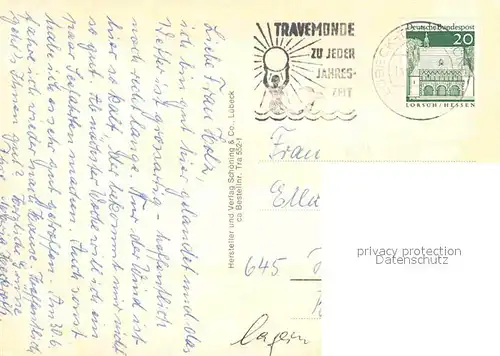 TRAVEMÜNDE
ZU JEDER
JAHRES-
ZEIT
Deutsche Bundespost
20
LORSCH/HESSEN
Liebe Frau Holz,
ich bin gut hier gelandet und das
Wetter ist großartig - hoffentlich
noch recht lange. Nur der Wind ist
hier so kalt, der bekommt mir nicht
so gut. Nächste Woche will ich ein
paar machen. Auch sonst
habe ich es sehr gut getroffen. Am 30.6.
fahre ich wieder nach Hause. Hoffentlich
geht's Ihnen gut? Herzliche Grüße
Ihre
Hersteller und Verlag Schöning & Co., Lübeck
co Bestellnr. Tra 552-1
Frau
Ella
645
privacy protection
Datenschutz